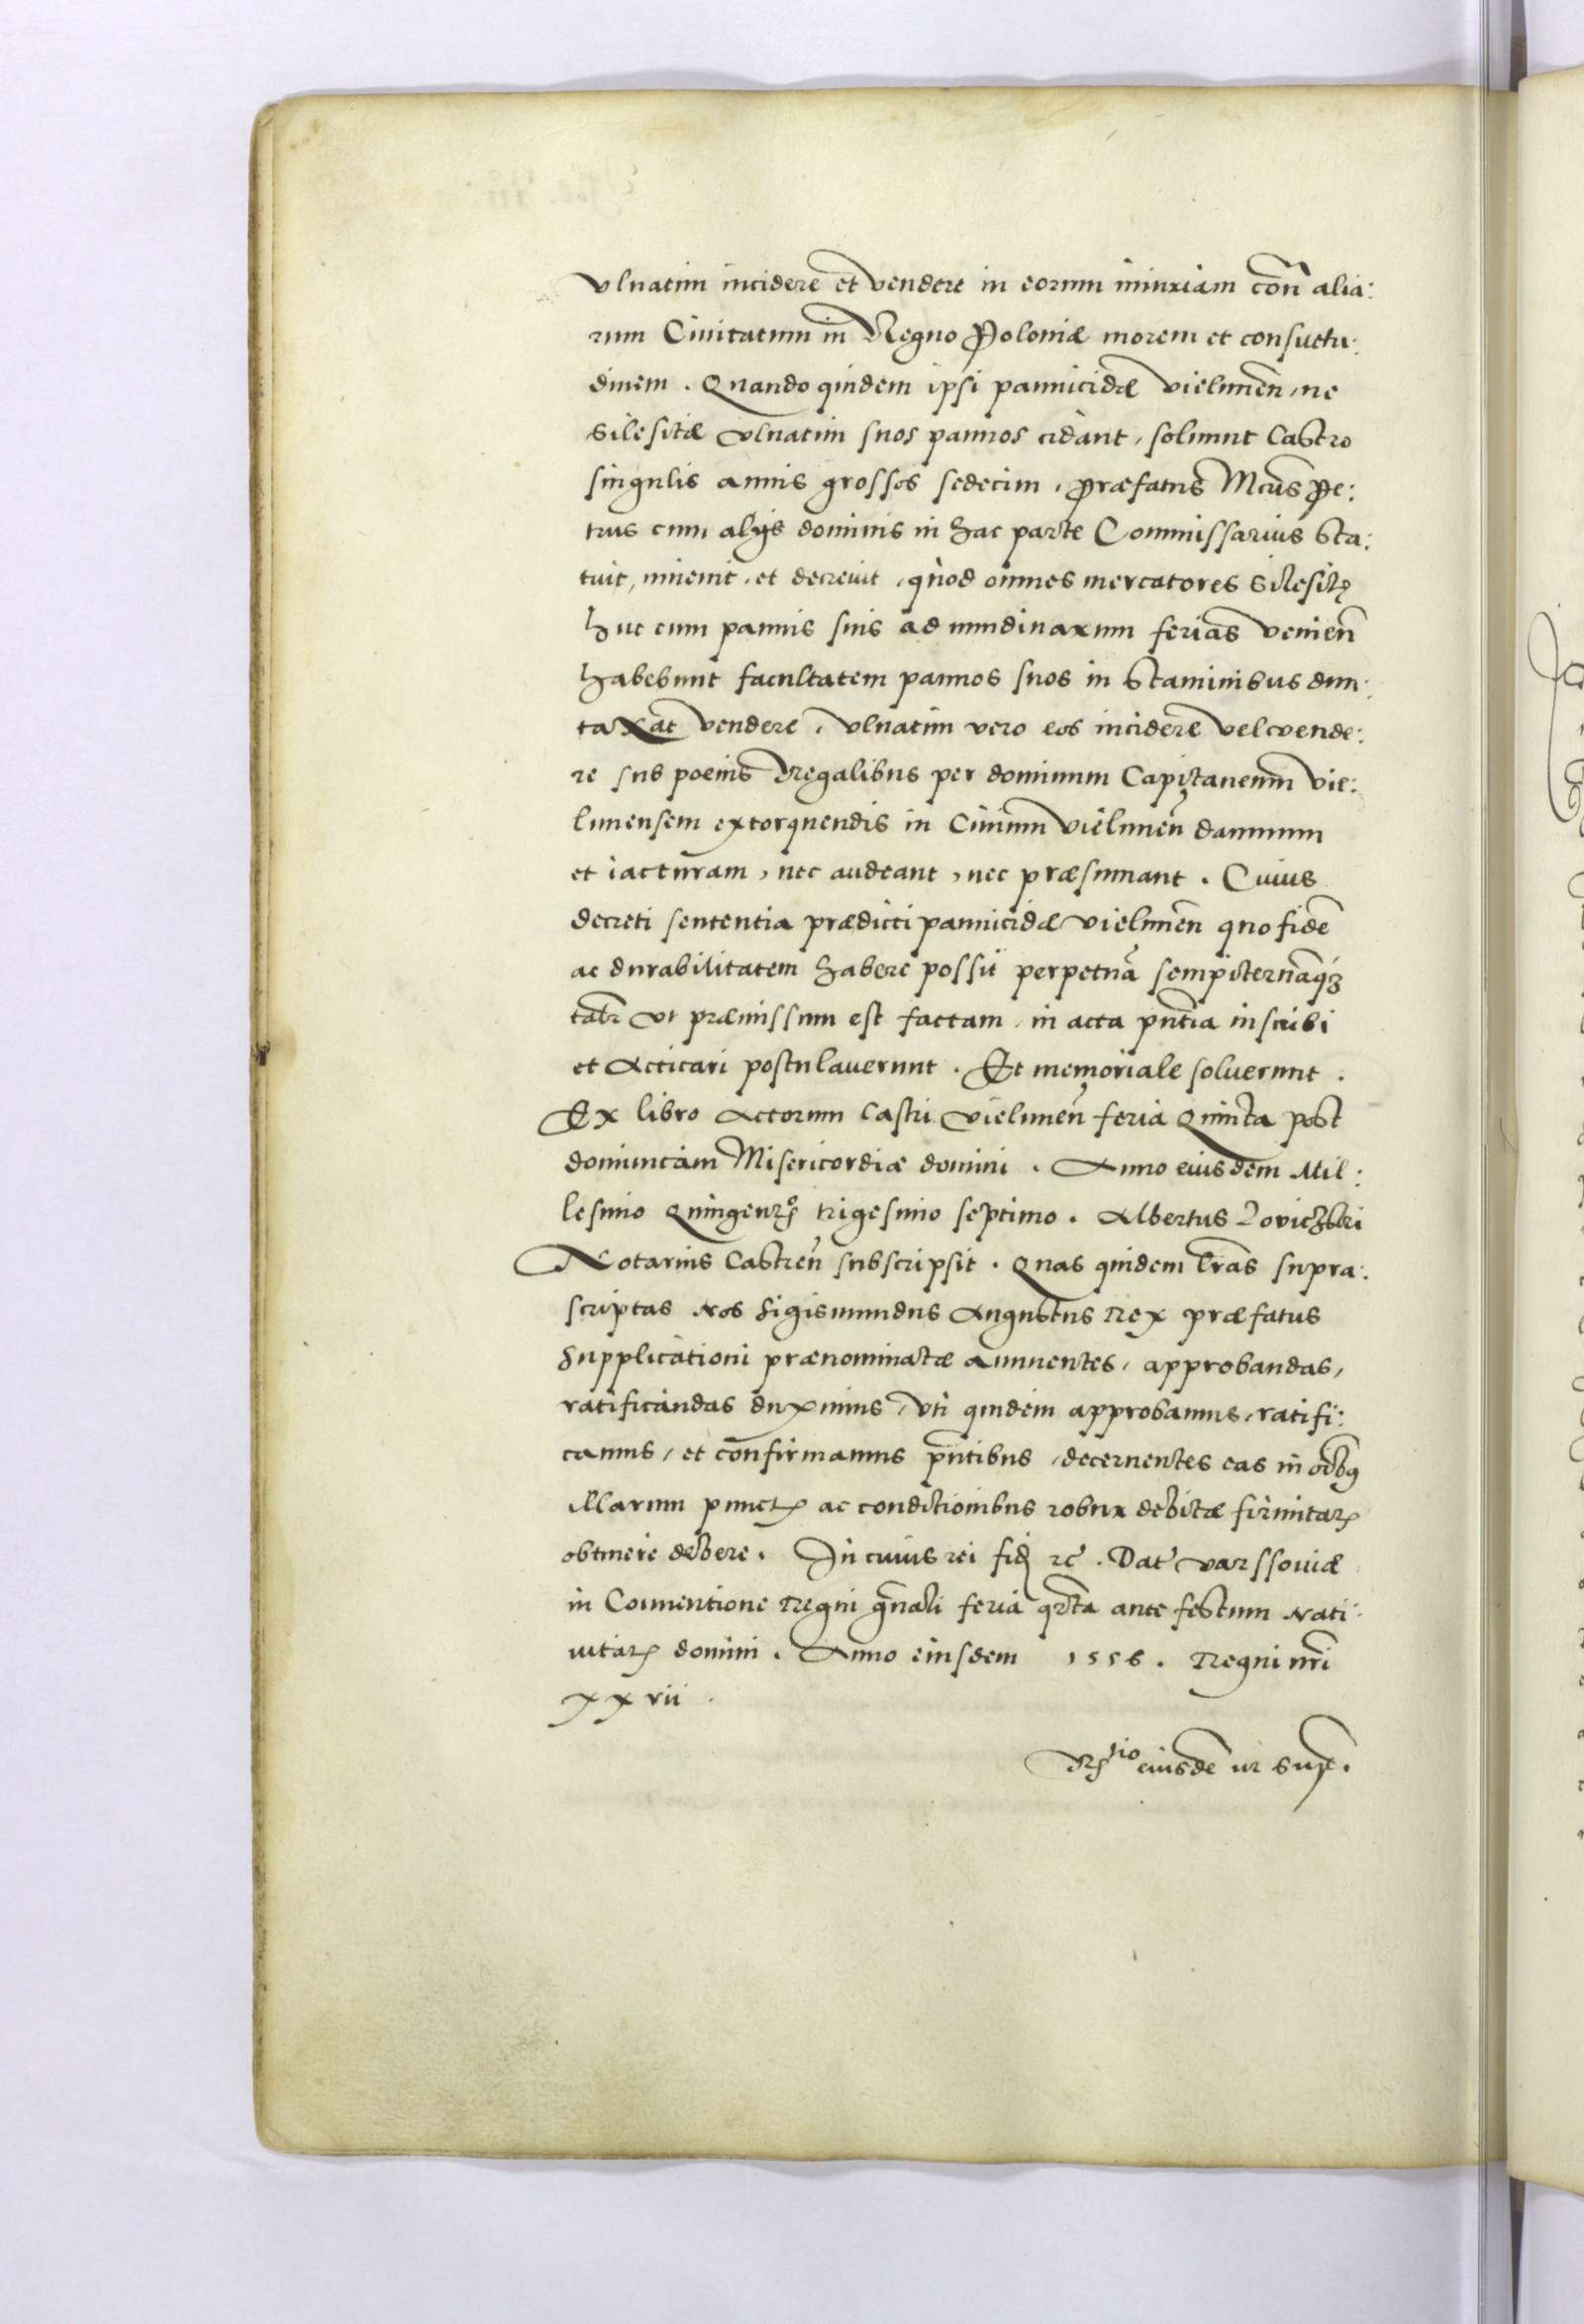 vlnatim incidere et vendere in eorum iniuriam cōn̄ alia:
rum Ciuitatum in Regno Poloniæ morem et consuetu:
dinem . Quando quidem ipsi pannicidæ vielunen̄, ne
Silesitæ vlnatim suos pannos cidant, soluunt Castro
singulis annis grossos sedecim, Præfatus Mcūs Pe:
trus cum alijs dominis in hac parte Commissarius Sta:
tuit, inuenit, et decreuit, quod omnes mercatores Silesitę
huc cum pannis suis ad nundinarum ferias venien̄
habebunt facultatem pannos suos in Staminibus dun:
taxat vendere, vlnatim vero eos incidere vel vende:
re sub poenis Regalibus per dominum Capitaneum vie:
lunensem extorquendis in Ciuium vielunen̄ damnum
et iacturam, nec audeant, nec præsumant . Cuius
decreti sententia prædicti pannicidæ vielunen̄ quo fidē
ac durabilitatem habere possit perpetuā sempiternāq́ꝫ
talr̄ vt præmissum est factam, in acta pn̄tia inscribi
et Acticari postulauerunt . Et memoriale soluerunt .
Ex libro Actorum Castri vielunen̄ feria Quinta post
dominicam Misericordiæ domini . Anno eiusdem Mil:
lesimo Quingen° trigesimo septimo . Albertus
Notarius Castren̄ subscripsit . Quas quidem lr̄as supra:
scriptas Nos Sigismundus Augustus Rex præfatus
Supplicationi prænominatæ annuentes, approbandas,
ratificandas duximus, vti quidem approbamus, ratifi:
camus, et confirmamus pn̄tibus, decernentes eas in oībꝯ
illarum punctꝭ ac conditionibus robur debitæ firmitatꝭ
obtinere debere . In cuius rei fidꝭ ꝛc̄ . Dat̄ varssouiæ
in Conuentione Regni gn̄ali feria qr̄ta ante festum Nati:
uitatꝭ domini . Anno eiusdem 1556 . Regni nr̄i
xxvii .
Rtio eiusdē ut supr̄.